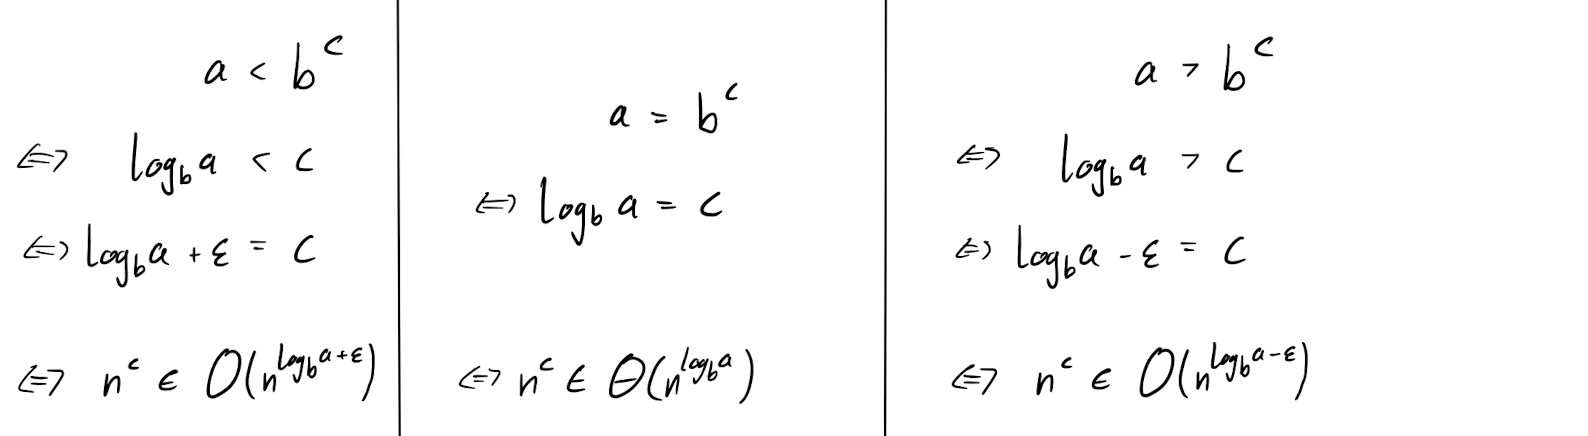 a < b^c
⇔ log_b a < c
⇔ log_b a + ε = c
⇔ n^c ∈ O(n^{log_b a + ε})
a = b^c
⇔ log_b a = c
⇔ n^c ∈ Θ(n^{log_b a})
a > b^c
⇔ log_b a > c
⇔ log_b a - ε = c
⇔ n^c ∈ O(n^{log_b a - ε})